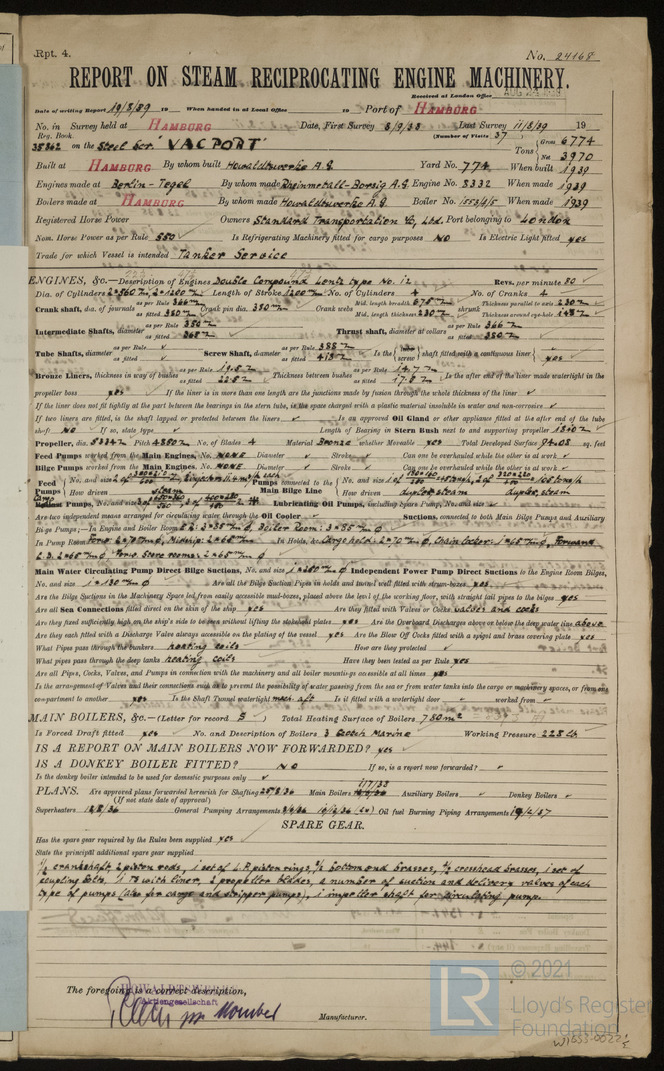 Rpt. 4.
No. 24168
REPORT ON STEAM RECIPROCATING ENGINE MACHINERY.
Received at London Office
Date of writing Report 19/8/39 19 When handed in at Local Office 19 Port of HAMBURG
No. in Survey held at HAMBURG Date, First Survey 8/9/38 Last Survey 11/8/39 19
Reg. Book (Number of Visits 37)
38862 on the Steel scr. "VACPORT" Tons Gross 6774 Net 3970
Built at HAMBURG By whom built Howaldtswerke A.G. Yard No. 774 When built 1939
Engines made at Berlin-Tegel By whom made Rheinmetall-Borsig A.G. Engine No. 8332 When made 1939
Boilers made at HAMBURG By whom made Howaldtswerke A.G. Boiler No. 1553/4/5 When made 1939
Registered Horse Power Owners Standard Transportation Co, Ltd. Port belonging to London
Nom. Horse Power as per Rule 550 Is Refrigerating Machinery fitted for cargo purposes NO Is Electric Light fitted yes
Trade for which Vessel is intended Tanker Service
ENGINES, &c.—Description of Engines Double Compound Lentz type No. 12 Revs. per minute 80
Dia. of Cylinders 2*560 2*1200 Length of Stroke 1200 No. of Cylinders 4 No. of Cranks 4
Crank shaft, dia. of journals as per Rule 366 as fitted 380 Crank pin dia. 380 Crank webs Mid. length breadth 675 Mid. length thickness 230 shrunk Thickness parallel to axis 230 Thickness around eye-hole
Intermediate Shafts, diameter as per Rule 350 as fitted 365 Thrust shaft, diameter at collars as per Rule 366 as fitted 380
Tube Shafts, diameter as per Rule as fitted Screw Shaft, diameter as per Rule 388 as fitted 413 Is the tube screw shaft fitted with a continuous liner yes
Bronze Liners, thickness in way of bushes as per Rule 19.8 as fitted 22.5 Thickness between bushes as per Rule 14.7 as fitted 17.5 Is the after end of the liner made watertight in the
propeller boss yes If the liner is in more than one length are the junctions made by fusion through the whole thickness of the liner
If the liner does not fit tightly at the part between the bearings in the stern tube, is the space charged with a plastic material insoluble in water and non-corrosive
If two liners are fitted, is the shaft lapped or protected between the liners Is an approved Oil Gland or other appliance fitted at the after end of the tube
shaft NO If so, state type Length of Bearing in Stern Bush next to and supporting propeller
Propeller, dia. Pitch 4380 No. of Blades 4 Material Bronze whether Moveable yes Total Developed Surface 94.08 sq. feet
Feed Pumps worked from the Main Engines, No. NONE Diameter Stroke Can one be overhauled while the other is at work
Bilge Pumps worked from the Main Engines, No. NONE Diameter Stroke Can one be overhauled while the other is at work
Feed Pumps No. and size How driven steam Pumps connected to the Main Bilge Line No. and size How driven duplex steam duplex steam
Lubricating Oil Pumps, including Spare Pump, No. and size
Are two independent means arranged for circulating water through the Oil Cooler Suctions, connected to both Main Bilge Pumps and Auxiliary
Bilge Pumps;—In Engine and Boiler Room
In Pump Room In Holds, &c.
Main Water Circulating Pump Direct Bilge Suctions, No. and size Independent Power Pump Direct Suctions to the Engine Room Bilges,
No. and size 1*130 Are all the Bilge Suction Pipes in holds and tunnel well fitted with strum-boxes yes
Are the Bilge Suctions in the Machinery Space led from easily accessible mud-boxes, placed above the level of the working floor, with straight tail pipes to the bilges yes
Are all Sea Connections fitted direct on the skin of the ship yes Are they fitted with Valves or Cocks valves and cocks
Are they fixed sufficiently high on the ship's side to be seen without lifting the stokehold plates yes Are the Overboard Discharges above or below the deep water line above
Are they each fitted with a Discharge Valve always accessible on the plating of the vessel yes Are the Blow Off Cocks fitted with a spigot and brass covering plate yes
What Pipes pass through the bunkers heating coils How are they protected
What pipes pass through the deep tanks heating coils Have they been tested as per Rule yes
Are all Pipes, Cocks, Valves, and Pumps in connection with the machinery and all boiler mountings accessible at all times yes
Is the arrangement of Valves and their connections such as to prevent the possibility of water passing from the sea or from water tanks into the cargo or machinery spaces, or from one
compartment to another yes Is the Shaft Tunnel watertight mach. aft Is it fitted with a watertight door worked from
MAIN BOILERS, &c.—(Letter for record S) Total Heating Surface of Boilers 750m²
Is Forced Draft fitted yes No. and Description of Boilers 3 Scotch Marine Working Pressure 225 lb
IS A REPORT ON MAIN BOILERS NOW FORWARDED? yes
IS A DONKEY BOILER FITTED? NO If so, is a report now forwarded?
Is the donkey boiler intended to be used for domestic purposes only
PLANS. Are approved plans forwarded herewith for Shafting 25/8/36 Main Boilers Auxiliary Boilers Donkey Boilers
(If not state date of approval)
Superheaters 18/8/36 General Pumping Arrangements Oil fuel Burning Piping Arrangements
SPARE GEAR.
Has the spare gear required by the Rules been supplied yes
State the principal additional spare gear supplied
½ crankshaft, 2 piston rods, 1 set of L.P. piston rings, bottom end brasses, crosshead brasses, 1 set of
coupling bolts, 1 TS with liner, 2 propeller blades, a number of suction and delivery valves of each
type of pumps (also for cargo and stripper pumps), 1 impeller shaft for circulating pump.
The foregoing is a correct description,
HOWALDTSWERKE
Aktiengesellschaft
Manufacturer.
LR © 2021
Lloyd's Register
Foundation
W1553-0022